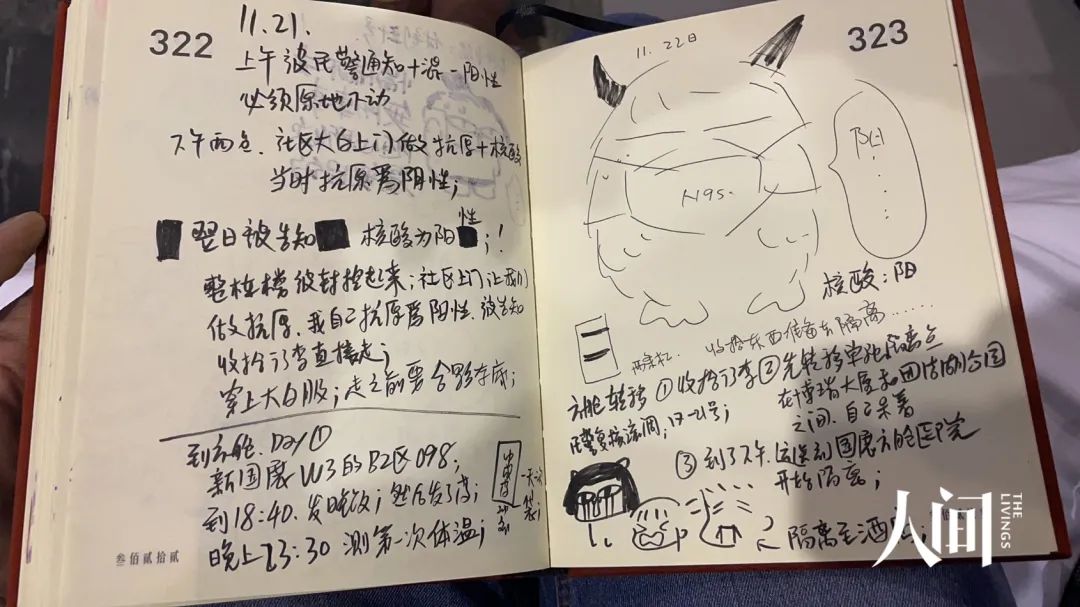 322
11.21.
上午被民警通知十混一阳性
必须原地不动
下午两点.社区大白上门做抗原+核酸
当时抗原为阴性;
翌日被告知 核酸为阳性;!
整栋楼被封控起来;社区上门让我们
做抗原.我自己抗原为阳性.被告知
收拾行李直接走;
穿上大白服;走之前要合影存底;
到方舱.Day①
新国展W3的B2区098;
到18:40.发晚饭;然后发了药;
晚上23:30 测第一次体温;
一天一次
叁佰贰拾贰
323
11.22日
N95.
核酸:阳
收拾东西准备去隔离……
方舱转移 ①收拾行李②先转移单独隔离点
民警复核流调,17-21号;
在博瑞大厦和团结湖公园
之间.自己呆着
③到了下午.运送到国展方舱医院
开始隔离;
隔离至酒
人间
THE LIVINGS